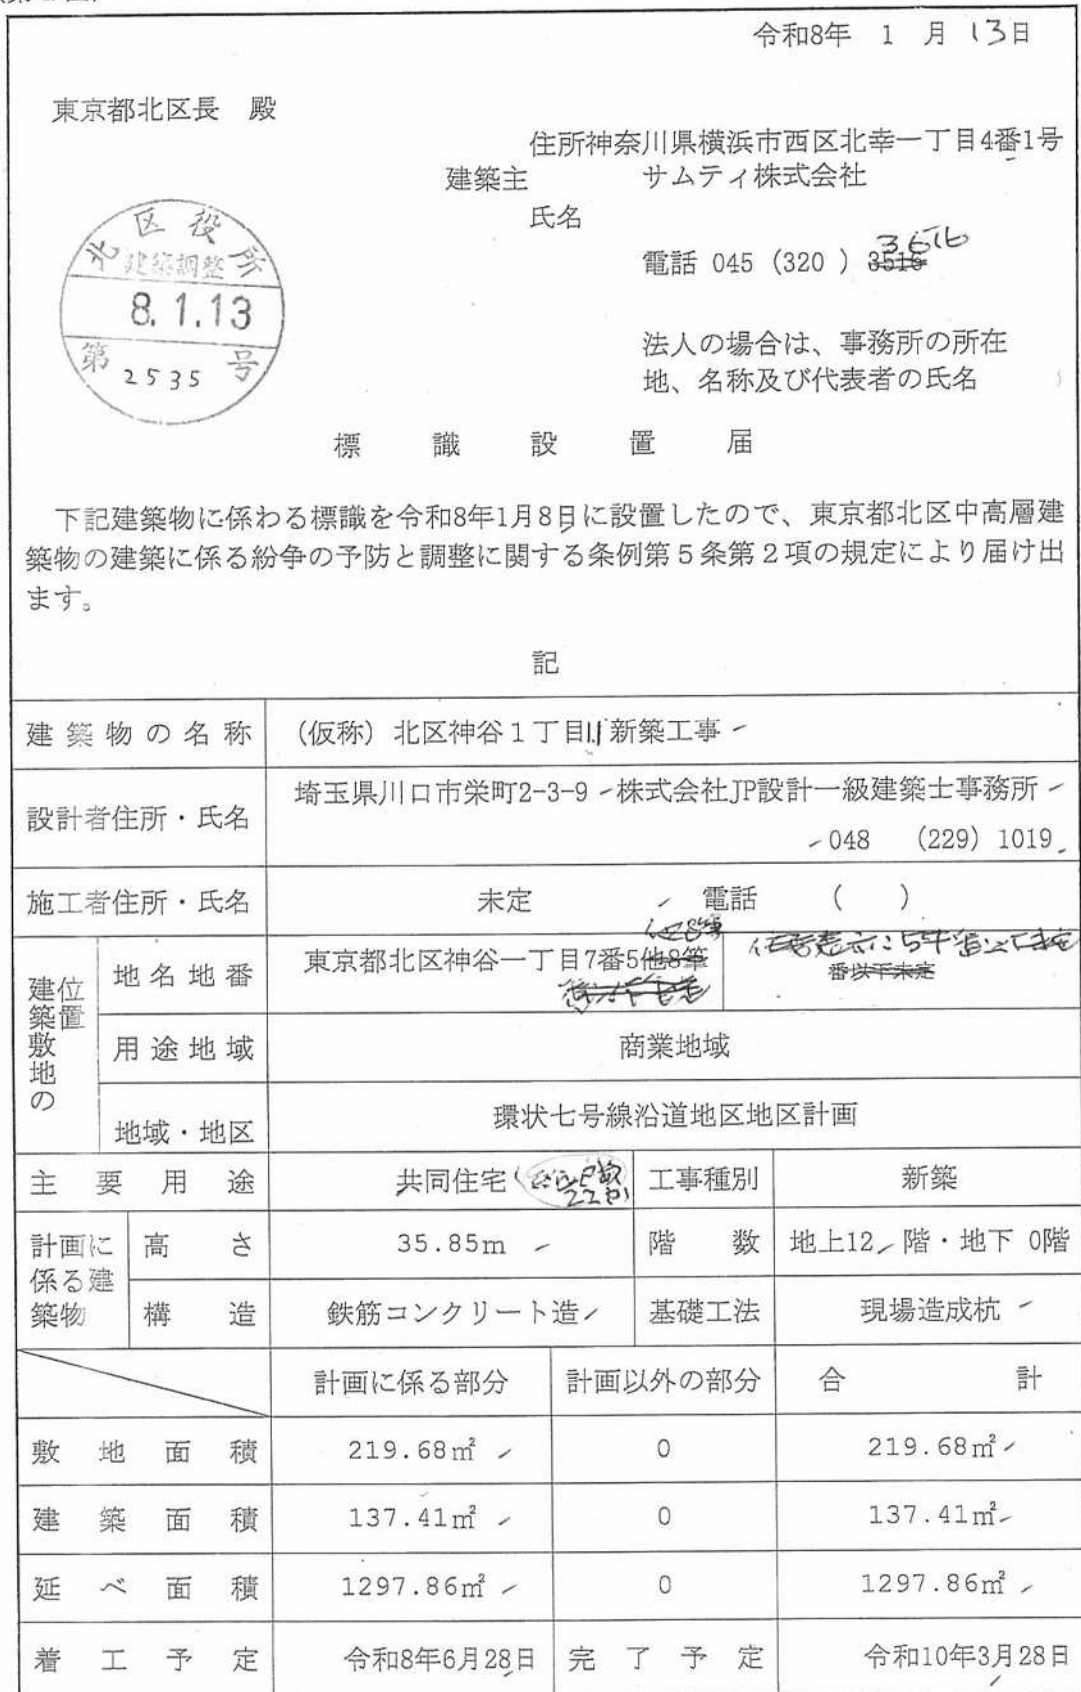 令和8年 1 月 13日
東京都北区長 殿
住所神奈川県横浜市西区北幸一丁目4番1号
建築主 サムティ株式会社
氏名
3616
電話 045 (320 ) 3516
法人の場合は、事務所の所在
地、名称及び代表者の氏名
北区役所
建築調整
8.1.13
第 2535 号
標識設置届
下記建築物に係わる標識を令和8年1月8日に設置したので、東京都北区中高層建
築物の建築に係る紛争の予防と調整に関する条例第5条第2項の規定により届け出
ます。
記
建築物の名称 (仮称) 北区神谷1丁目II新築工事
設計者住所・氏名 埼玉県川口市栄町2-3-9 株式会社JP設計一級建築士事務所
048 (229) 1019
施工者住所・氏名 未定 電話 ( )
建築敷地の位置
他8筆
地名地番 東京都北区神谷一丁目7番5他8筆
番以下未定
用途地域 商業地域
地域・地区 環状七号線沿道地区地区計画
主要用途 共同住宅 戸数 22 工事種別 新築
計画に係る建築物
高さ 35.85m 階数 地上12 階・地下 0階
構造 鉄筋コンクリート造 基礎工法 現場造成杭
計画に係る部分 計画以外の部分 合計
敷地面積 219.68㎡ 0 219.68㎡
建築面積 137.41㎡ 0 137.41㎡
延べ面積 1297.86㎡ 0 1297.86㎡
着工予定 令和8年6月28日 完了予定 令和10年3月28日